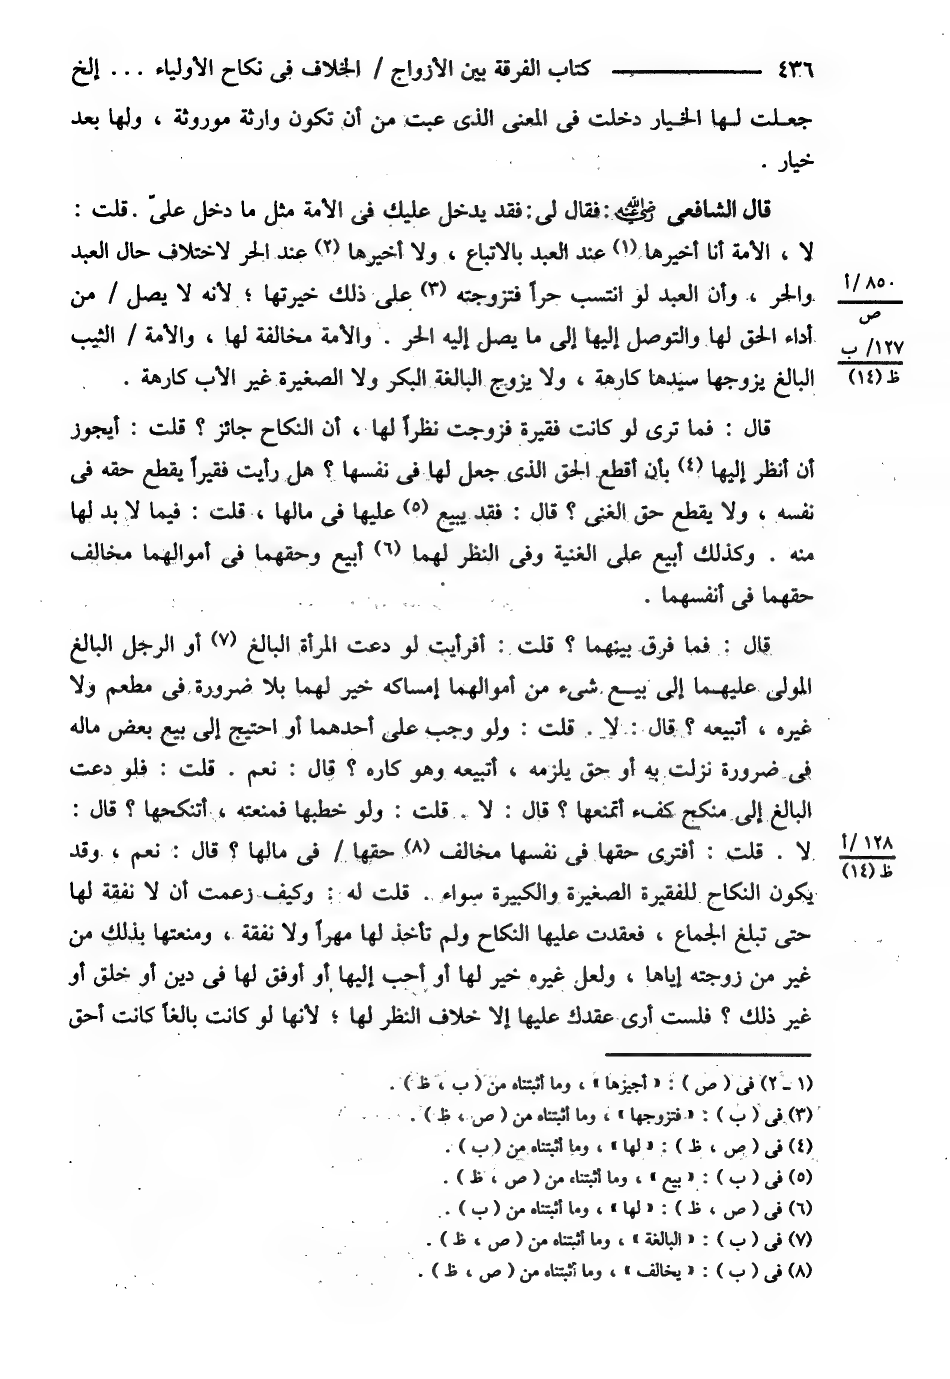 ٤٣٦ ـــــــــ كتاب الفرقة بين الأزواج / الخلاف فى نكاح الأولياء ... إلخ
جعلت لها الخيار دخلت فى المعنى الذى عبت من أن تكون وارثة موروثة ، ولها بعد
خيار .
قال الشافعى رضي الله عنه : فقال لى : فقد يدخل عليك فى الأمة مثل ما دخل علىّ . قلت :
لا ، الأمة أنا أخيرها (١) عند العبد بالاتباع ، ولا أخيرها (٢) عند الحر لاختلاف حال العبد
والحر ، وأن العبد لو انتسب حراً فتزوجته (٣) على ذلك خيرتها ؛ لأنه لا يصل / من
٨٥٠ /أ
ص
أداء الحق لها والتوصل إليها إلى ما يصل إليه الحر . والأمة مخالفة لها ، والأمة / الثيب
١٢٧/ ب
ظ (١٤)
البالغ يزوجها سيدها كارهة ، ولا يزوج البالغة البكر ولا الصغيرة غير الأب كارهة .
قال : فما ترى لو كانت فقيرة فزوجت نظراً لها ، أن النكاح جائز ؟ قلت : أيجوز
أن أنظر إليها (٤) بأن أقطع الحق الذى جعل لها فى نفسها ؟ هل رأيت فقيراً يقطع حقه فى
نفسه ، ولا يقطع حق الغنى ؟ قال : فقد يبيع (٥) عليها فى مالها ، قلت : فيما لا بد لها
منه . وكذلك أبيع على الغنية وفى النظر لهما (٦) أبيع وحقهما فى أموالهما مخالف
حقهما فى أنفسهما .
قال : فما فرق بينهما ؟ قلت : أفرأيت لو دعت المرأة البالغ (٧) أو الرجل البالغ
المولى عليهما إلى بيع شىء من أموالهما إمساكه خير لهما بلا ضرورة فى مطعم ولا
غيره ، أتبيعه ؟ قال : لا . قلت : ولو وجب على أحدهما أو احتيج إلى بيع بعض ماله
فى ضرورة نزلت به أو حق يلزمه ، أتبيعه وهو كاره ؟ قال : نعم . قلت : فلو دعت
البالغ إلى منكح كفء أتمنعها ؟ قال : لا . قلت : ولو خطبها فمنعته ، أتنكحها ؟ قال :
لا . قلت : أفترى حقها فى نفسها مخالف (٨) حقها / فى مالها ؟ قال : نعم ، وقد
١٢٨ /أ
ظ (١٤)
يكون النكاح للفقيرة الصغيرة والكبيرة سواء . قلت له : وكيف زعمت أن لا نفقة لها
حتى تبلغ الجماع ، فعقدت عليها النكاح ولم تأخذ لها مهراً ولا نفقة ، ومنعتها بذلك من
غير من زوجته إياها ، ولعل غيره خير لها أو أحب إليها أو أوفق لها فى دين أو خلق أو
غير ذلك ؟ فلست أرى عقدك عليها إلا خلاف النظر لها ؛ لأنها لو كانت بالغاً كانت أحق
(١ - ٢) فى ( ص ) : « أجيزها » ، وما أثبتناه من ( ب ، ظ ) .
(٣) فى ( ب ) : « فتزوجها » ، وما أثبتناه من ( ص ، ظ ) .
(٤) فى ( ص ، ظ ) : « لها » ، وما أثبتناه من ( ب ) .
(٥) فى ( ب ) : « بيع » ، وما أثبتناه من ( ص ، ظ ) .
(٦) فى ( ص ، ظ ) : « لها » ، وما أثبتناه من ( ب ) .
(٧) فى ( ب ) : « البالغة » ، وما أثبتناه من ( ص ، ظ ) .
(٨) فى ( ب ) : « يخالف » ، وما أثبتناه من ( ص ، ظ ) .